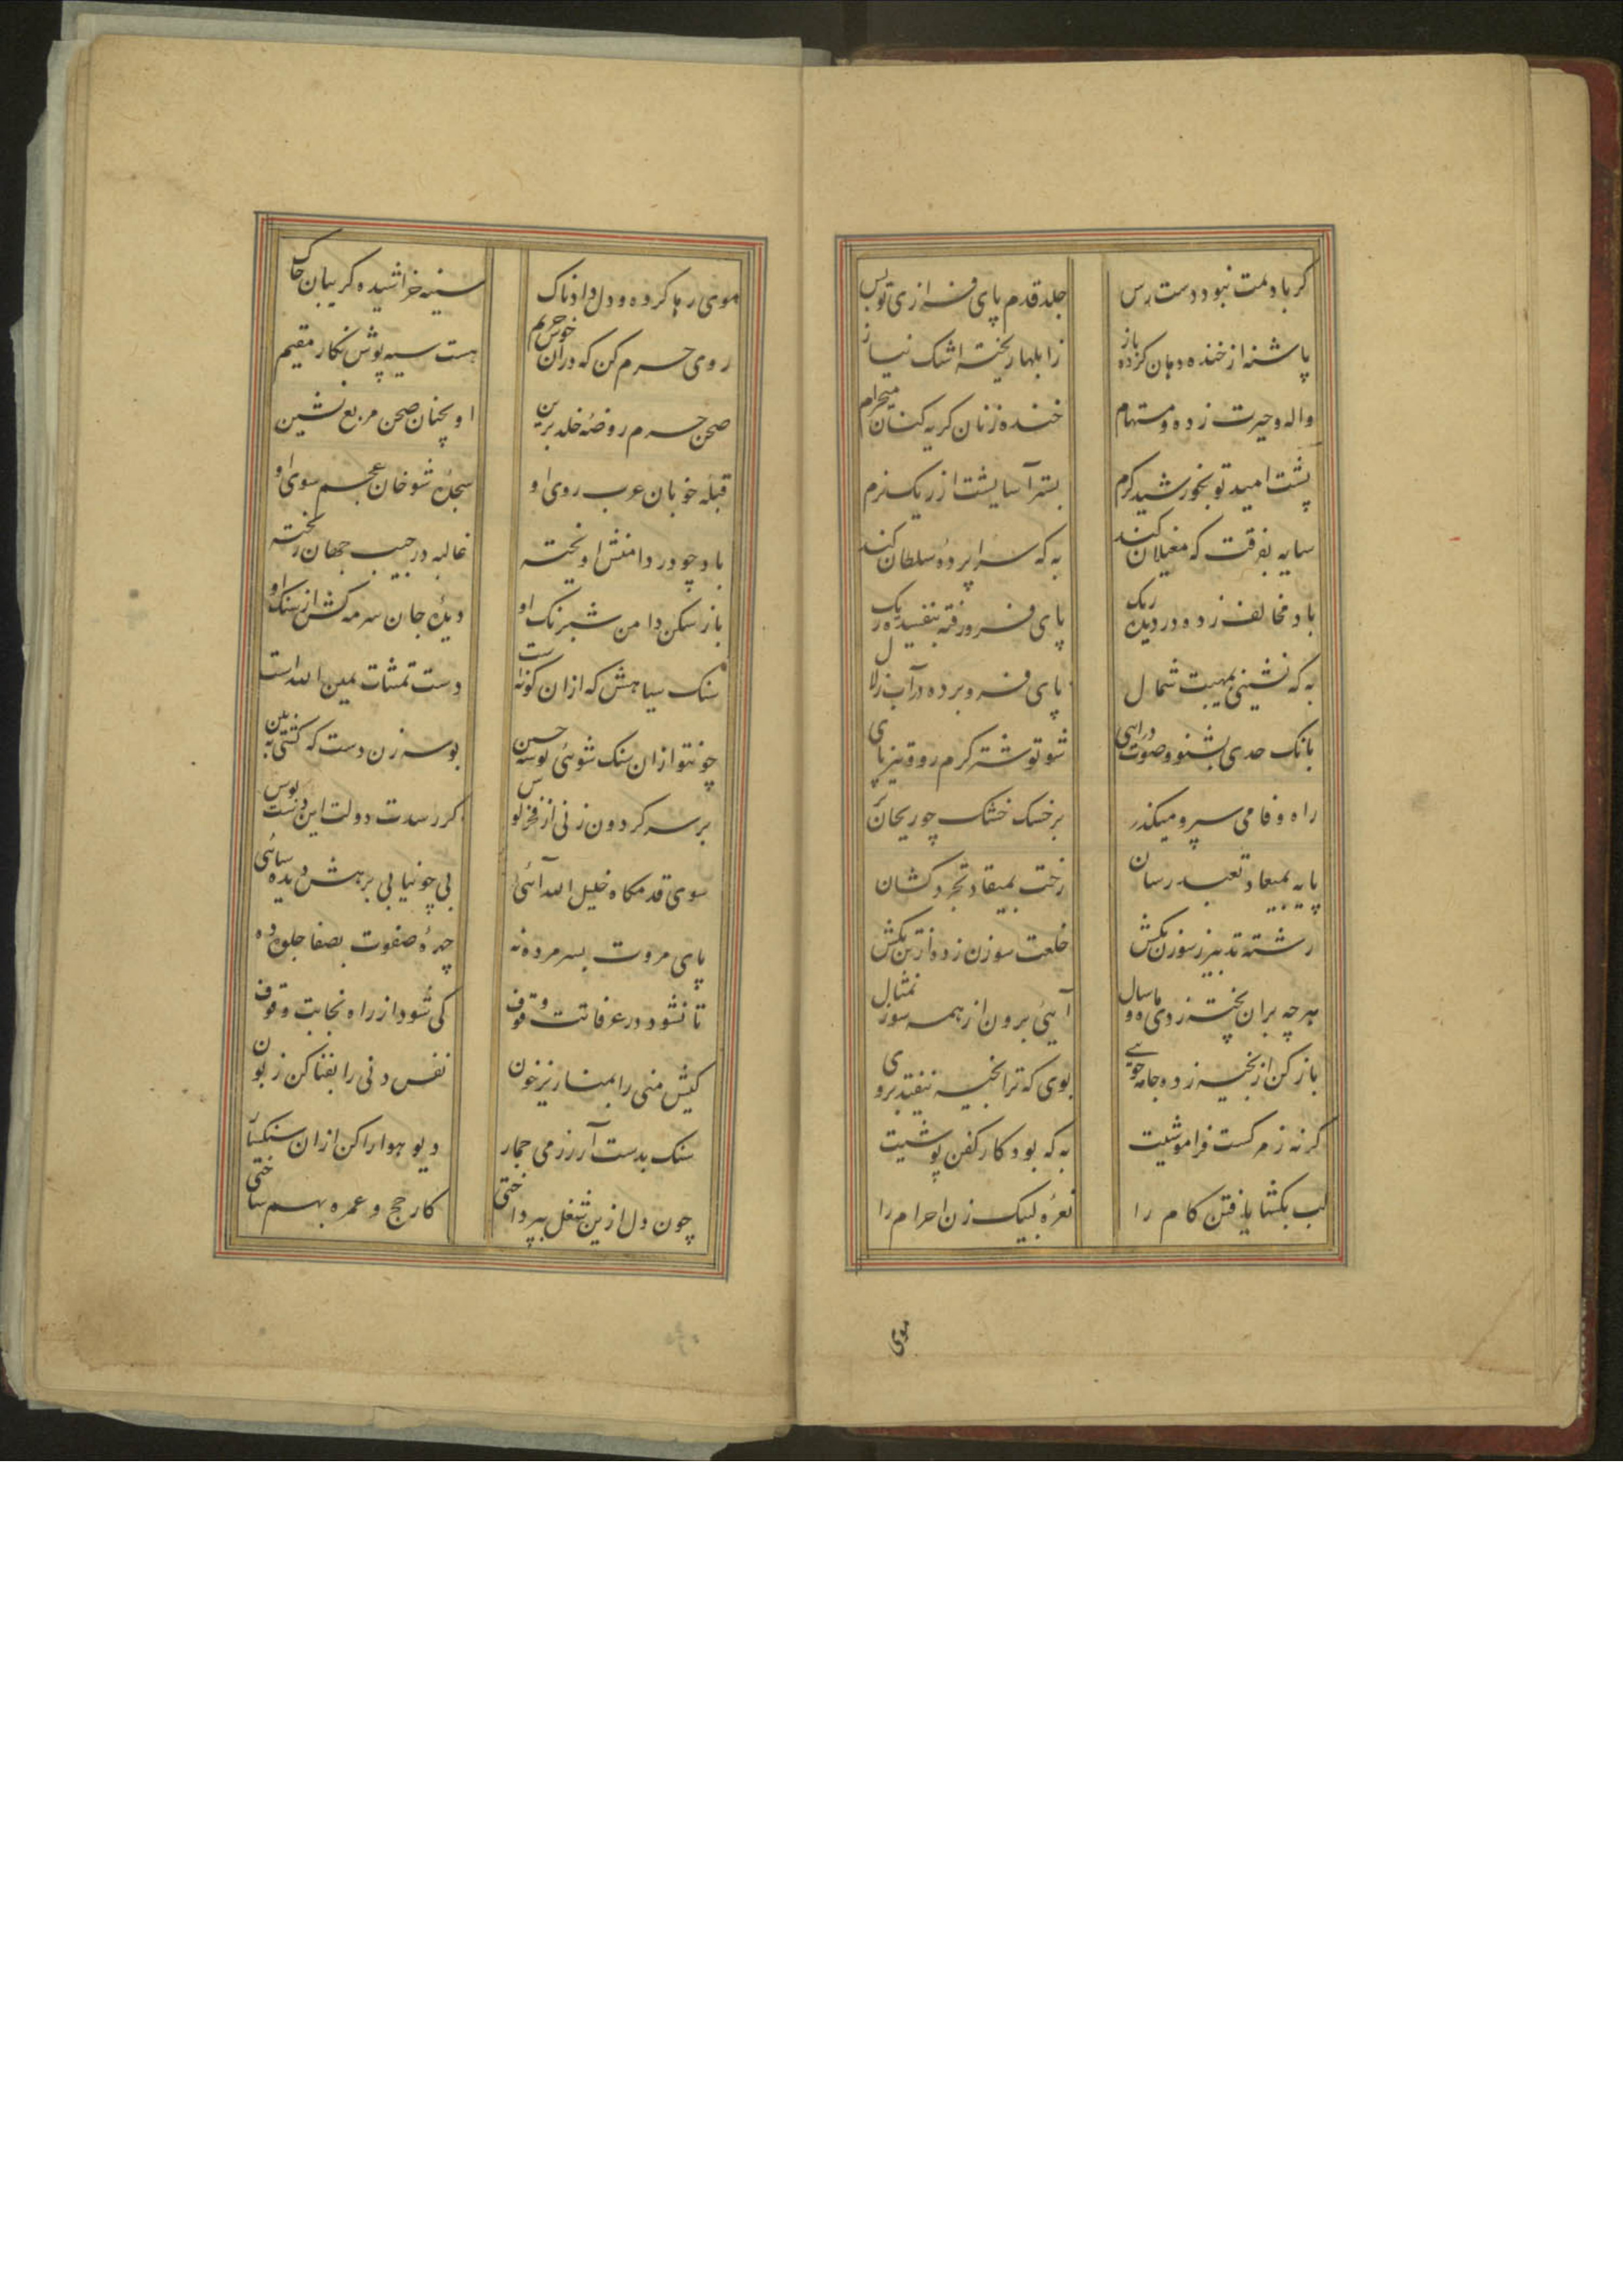 كر بادلمت نبود دست رس جلد قدم پای فرازی تو بس
پاشنه از خنده دهان كرده باز ز ابلها ریخته اشك نیاز
واله و حیرت زده و مستهام خنده زنان كریه كنان میخرام
پشت امید تو بخورشید كرم بستر آسایشت از ریك نرم
سایه بفرقت كه مغیلان كند به كه سراپرده سلطان كند
باد مخالف زده در دیده ریك پای فرو رفته بتفسیده ریك
به كه نشینی بمهبت شمال پای فرو برده در آب زلال
بانك حدی بشنو و صوت درای شو تو شتر كرم رو و تیز پای
راه وفا می سپر و میكذر بر خسك خشك چو ریحان تر
پایه بمیعاد تعبد رسان رخت بمیقات تجرد كشان
رشته تدبیر ز سوزن بكش خلعت سوزن زده از تن بكش
هر چه بران بخیه زدی ماه و سال آیی برون از همه سوزن مثال
باز كن از بخیه زده جامه خوی بوی كه ترا بخیه نیفتد بروی
كر نه ز مركست فراموشیت به كه بود كار كفن پوشیت
لب بكشا یافتن كام را نعره لبیك زن احرام را
موی
موی رها كرده و دل دادناك سینه خراشیده كریبان چاك
روی حرم كن كه در آن خوش حریم هست سیه پوش نكار مقیم
صحن حرم روضه خلد برین او بچنان صحن مربع نشین
قبله خوبان عرب روی او سجده شوخان عجم سوی او
باد چو در دامنش اویخته غالیه در جیب جهان ریخته
باز شكن دامن شبرنك او دیده جان سرمه كش از سنك او
سنك سیاهش كه از ان كوته است دست تمنات یمین الله است
چون تو از ان سنك شوئی بوسه چین بوسه زن دست كه كشتی ببین
بر سر كردون زنی از فخر كوس كر رسدت دولت این دستبوس
سوی قدمكاه خلیل الله آئی پی چو نیابی برهش دیده سائی
پای مروت بسر مروه نه چهره صفوت بصفا جلوه ده
تا نشود در عرفاتت وقوف كی شود از راه نجاتت وقوف
كیش منی را بمنا ریز خون نفس دنی را بفنا كن زبون
سنك بدست آر ز رمی جمار دیو هوا را كن از ان سنكسار
چون دل ازین شغل بپرداختی كار حج و عمره بهم ساختی